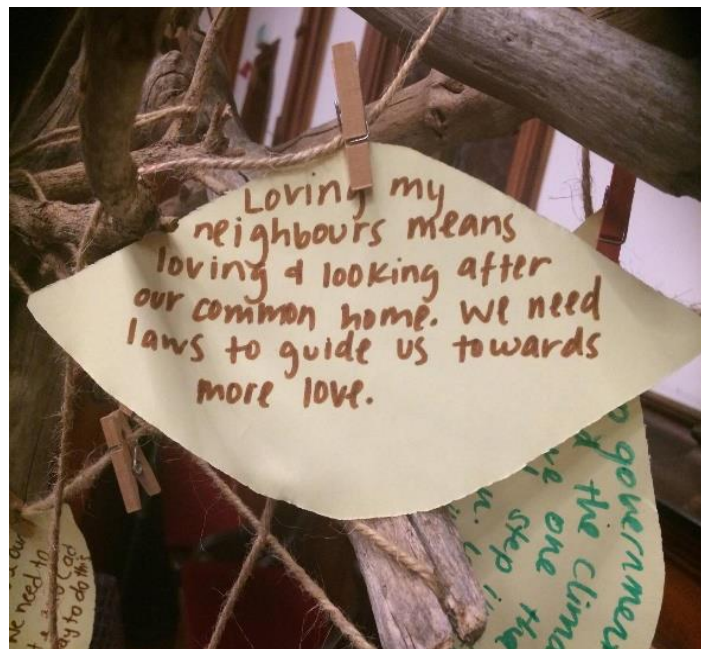 Loving my
neighbours means
loving & looking after
our common home. We need
laws to guide us towards
more love.
government
the clima
one the
step i
We need to
ay to do this